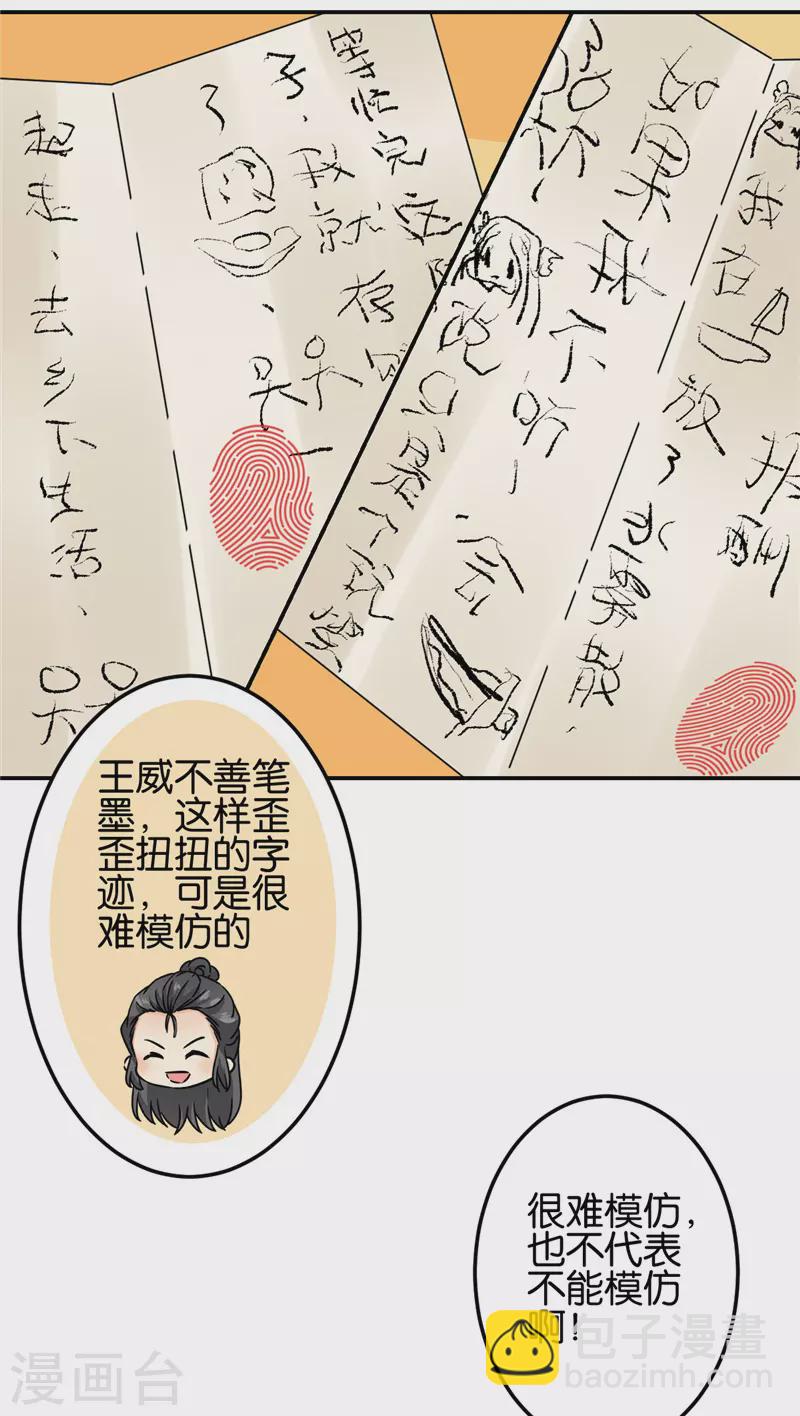 等忙完这
子、我就存
了
起走、去乡下生活、
我在
放
了
如果
不听、会
只是个玩笑
王威不善笔
墨，这样歪
歪扭扭的字
迹，可是很
难模仿的
很难模仿，
也不代表
不能模仿
啊！
漫画台
包子漫畫
baozimh.com